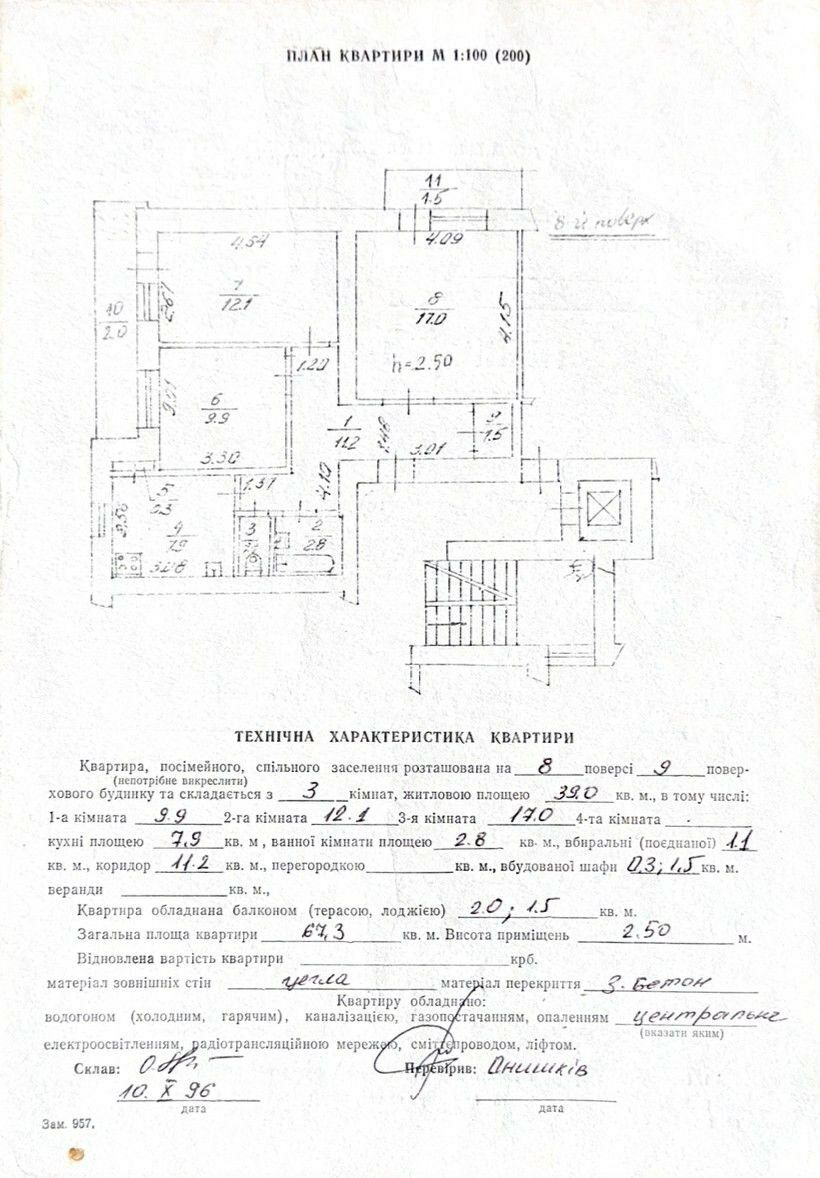 ПЛАН КВАРТИРИ М 1:100 (200)
11
1.5
8-й поверх
4.54
4.09
7
12.1
2.67
10
2.0
8
17.0
4.15
h=2.50
1.20
6
9.9
3.01
3.30
1
11.2
1.48
3.01
9
1.5
4.10
5
0.3
1.31
2.56
4
7.9
3.08
3
2
2.8
ТЕХНІЧНА ХАРАКТЕРИСТИКА КВАРТИРИ
Квартира, посімейного, спільного заселення розташована на 8 поверсі 9 повер-
(непотрібне викреслити)
хового будинку та складається з 3 кімнат, житловою площею 39.0 кв. м., в тому числі:
1-а кімната 9.9 2-га кімната 12.1 3-я кімната 17.0 4-та кімната
кухні площею 7.9 кв. м , ванної кімнати площею 2.8 кв. м., вбиральні (поєднаної) 1.1
кв. м., коридор 11.2 кв. м., перегородкою кв. м., вбудованої шафи 0,3; 1,5 кв. м.
веранди кв. м.,
Квартира обладнана балконом (терасою, лоджією) 2.0; 1.5 кв. м.
Загальна площа квартири 67,3 кв. м. Висота приміщень 2.50 м.
Відновлена вартість квартири крб.
матеріал зовнішніх стін цегла матеріал перекриття З. бетон
Квартиру обладнано:
водогоном (холодним, гарячим), каналізацією, газопостачанням, опаленням центральне
(вказати яким)
електроосвітленням, радіотрансляційною мережею, сміттєпроводом, ліфтом.
Склав: Перевірив: Онишків
10. X 96
дата дата
Зам. 957.